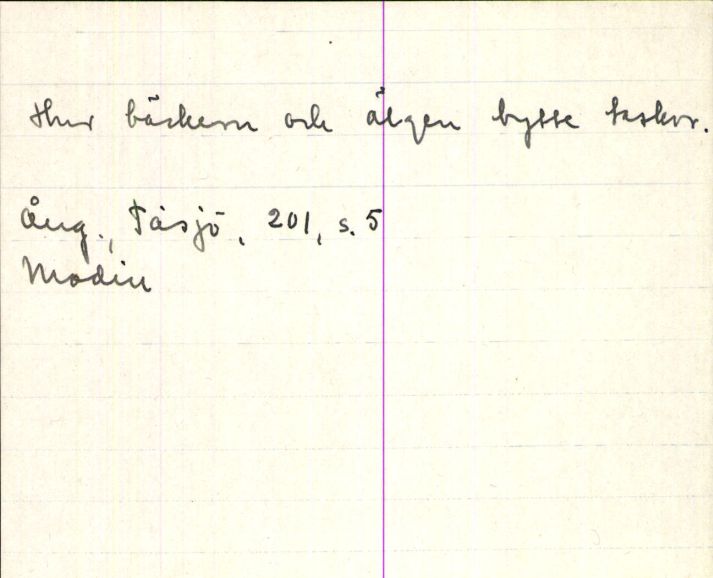 Hur bäckern och älgen bytte taskor.
Ång., Tåsjö, 201, s. 5
Modin